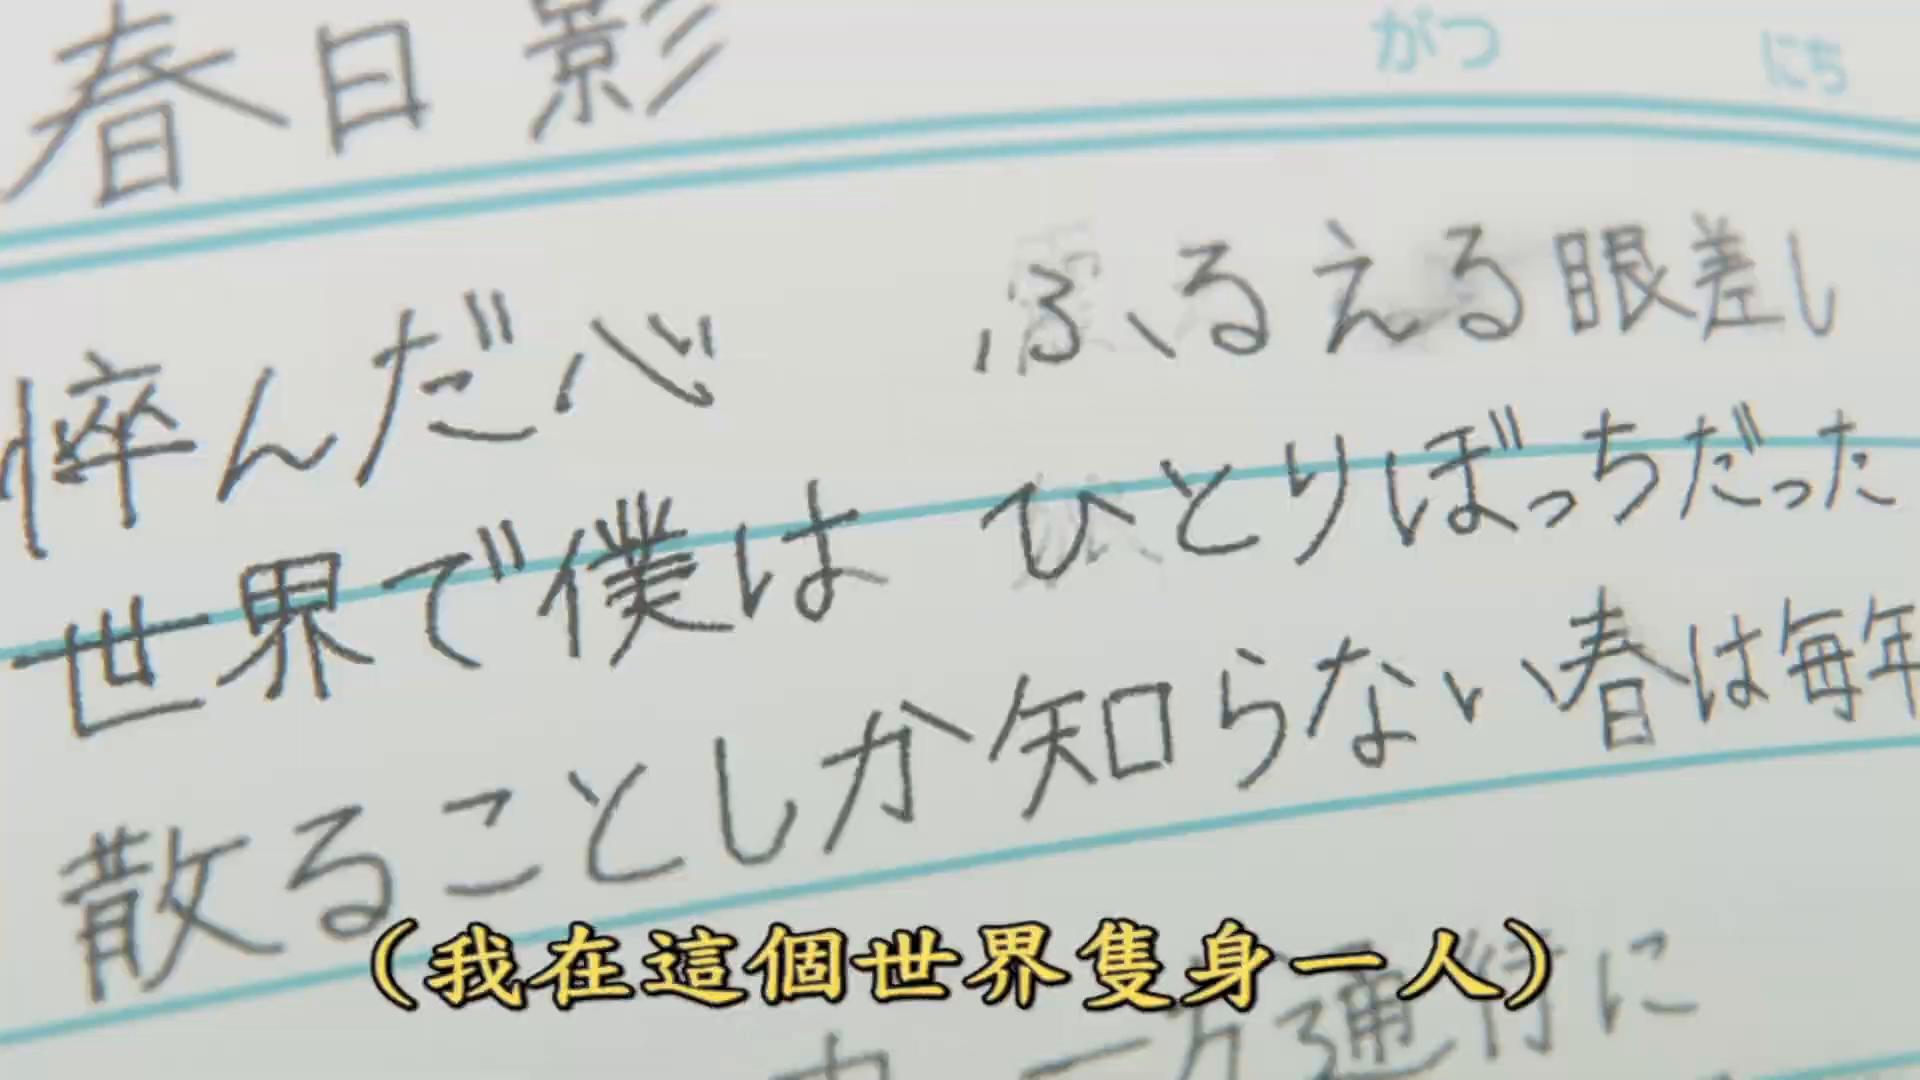 春日影
がつ にち
悴んだ心 ふるえる眼差し
世界で僕は ひとりぼっちだった
散ることしか知らない春は毎年
(我在這個世界隻身一人)
一方通行に